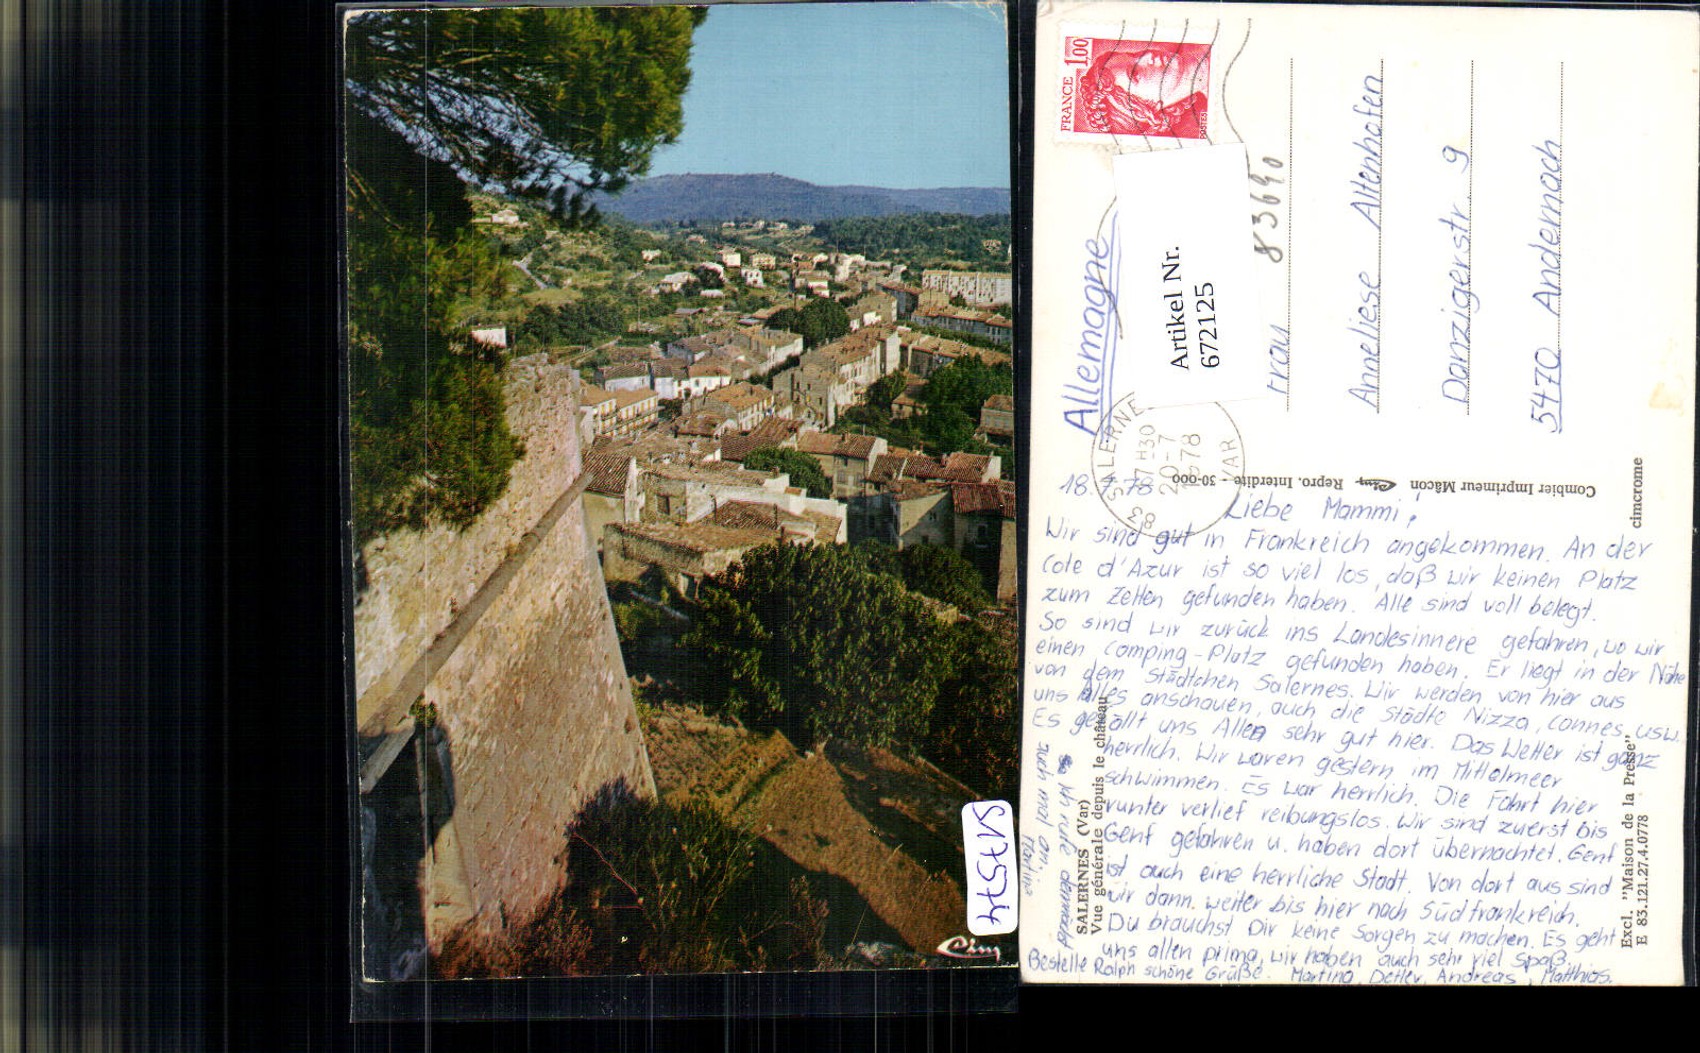 S17574
Cim
FRANCE 1,00
POSTES
Allemagne
Artikel Nr.
672125
83690
Frau
Anneliese Altenhofen
Danzigerstr. 9
5470 Andernach
83 SALERNES
17 H30
20-7
1978
VAR
Combier Imprimeur Mâcon Cim Repro. Interdite - 30-000
cimcrome
18.7.78
Liebe Mammi!
Wir sind gut in Frankreich angekommen. An der
Cote d'Azur ist so viel los, daß wir keinen Platz
zum Zelten gefunden haben. Alle sind voll belegt.
So sind wir zurück ins Landesinnere gefahren, wo wir
einen Camping-Platz gefunden haben. Er liegt in der Nähe
von dem Städtchen Salernes. Wir werden von hier aus
uns alles anschauen, auch die Städte Nizza, Cannes, usw.
Es gefällt uns Allen sehr gut hier. Das Wetter ist ganz
herrlich. Wir waren gestern im Mittelmeer
schwimmen. Es war herrlich. Die Fahrt hier
runter verlief reibungslos. Wir sind zuerst bis
Genf gefahren u. haben dort übernachtet. Genf
ist auch eine herrliche Stadt. Von dort aus sind
wir dann weiter bis hier nach Südfrankreich.
Du brauchst Dir keine Sorgen zu machen. Es geht
uns allen prima, wir haben auch sehr viel Spaß.
Bestelle Ralph schöne Grüße. Martina, Detlev, Andreas, Matthias.
ich rufe demnächst
auch mal an!
Martina
SALERNES (Var)
Vue générale depuis le château
Excl. "Maison de la Presse"
E 83.121.27.4.0778